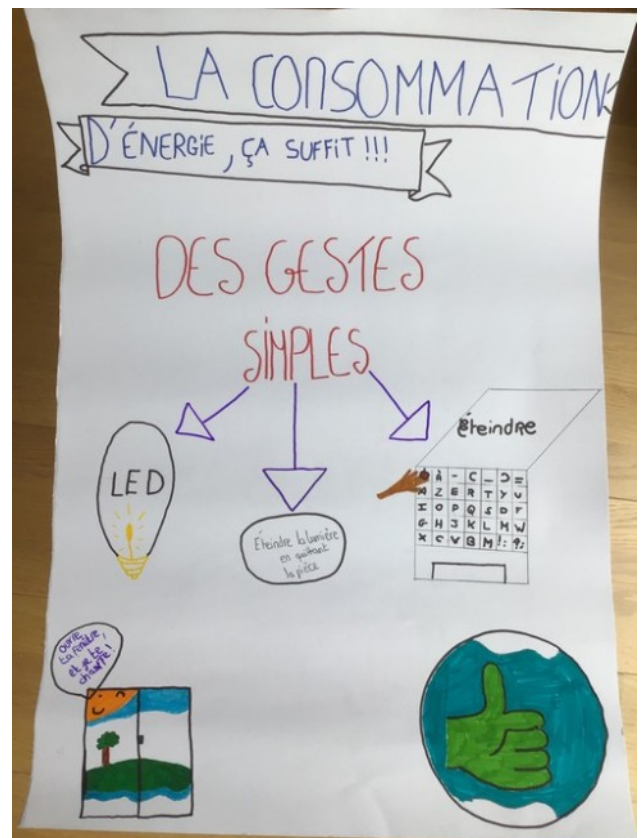 LA CONSOMMATION
D'ÉNERGIE, ÇA SUFFIT !!!
DES GESTES
SIMPLES
LED
Éteindre la lumière
en quittant
la pièce
éteindre
À - C _ Ɔ =
A Z E R T Y U
I O P Q S D F
G H J K L M W
X C V B M !:
ouvre
ta fenêtre,
et je te
chauffe!